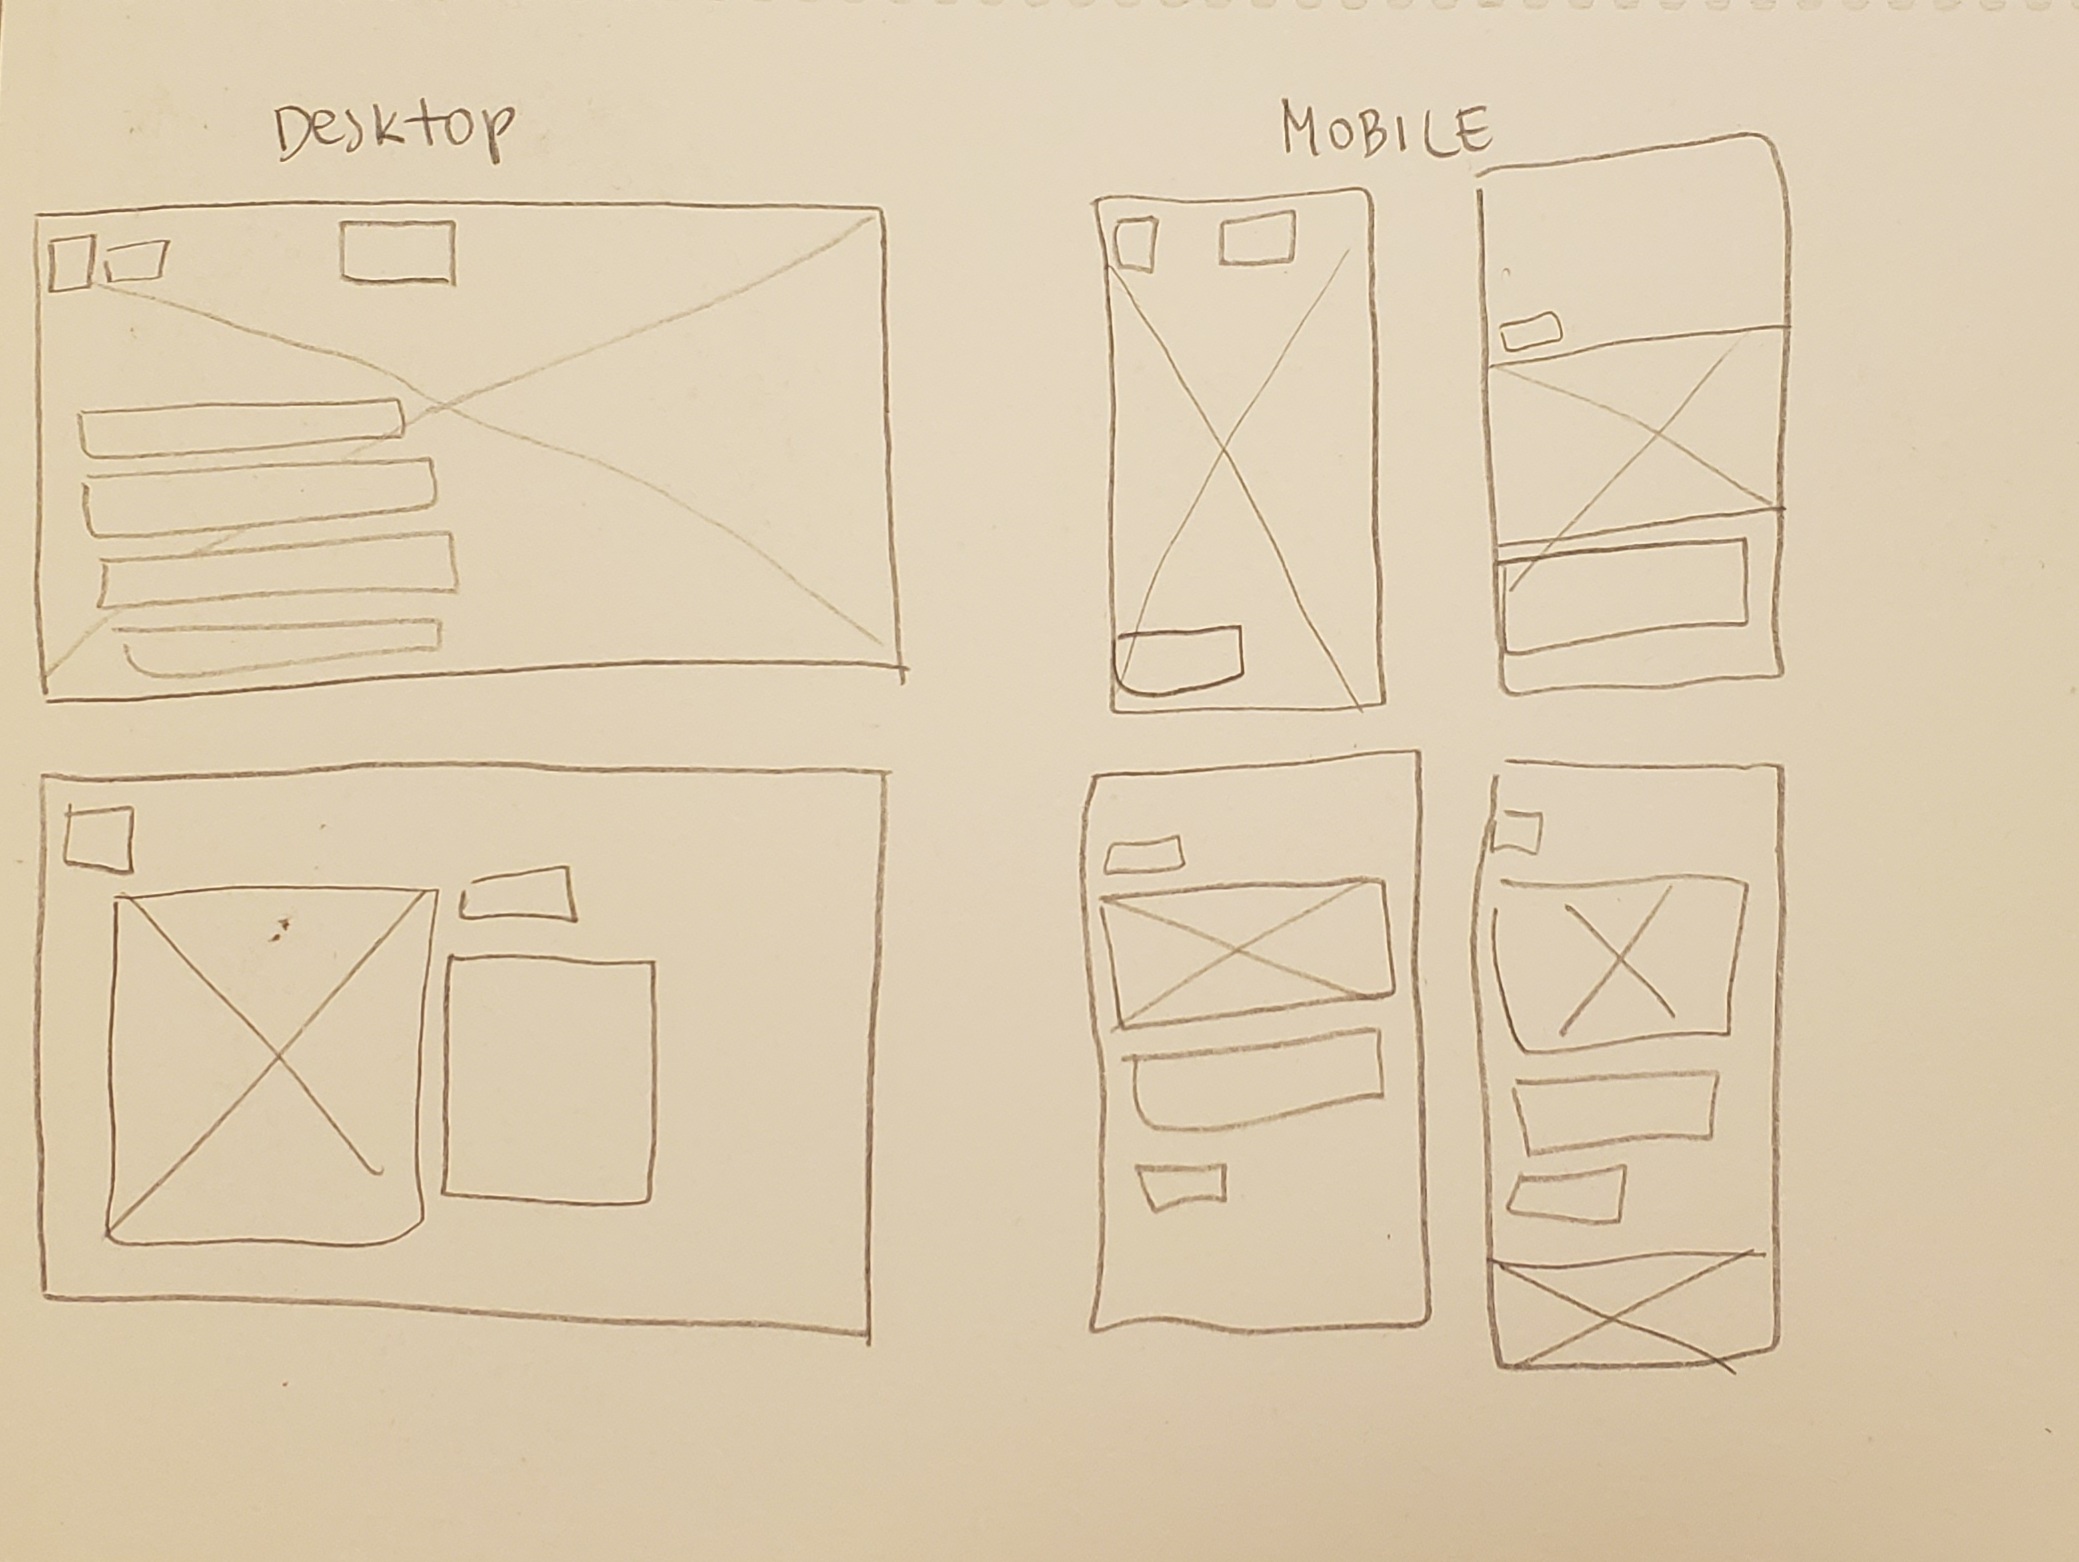 Desktop
MOBILE